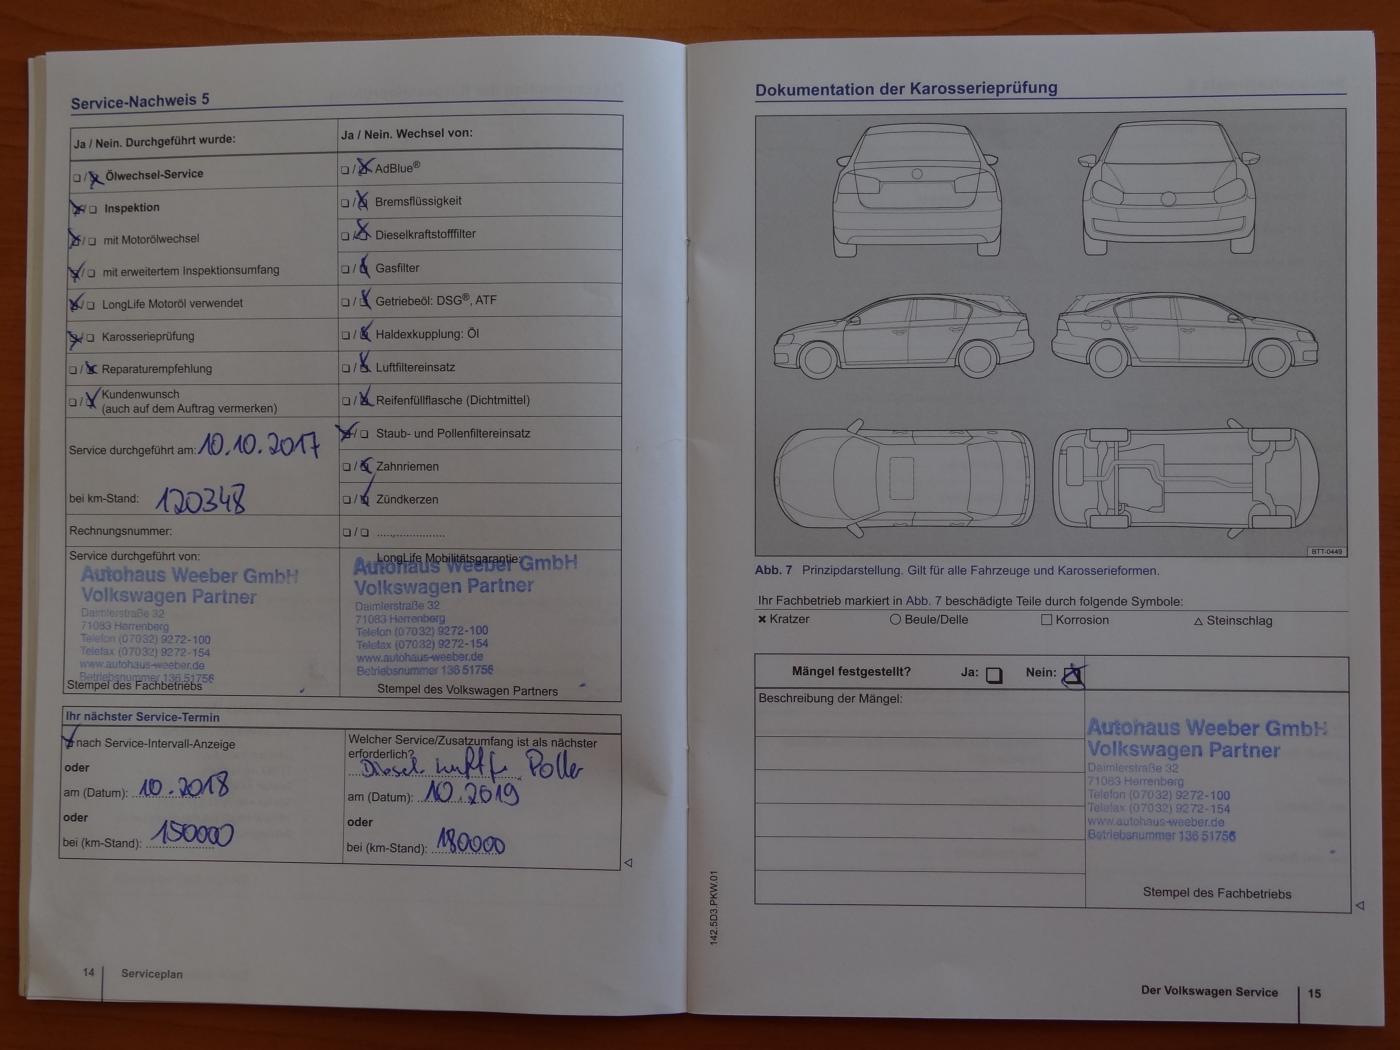 Service-Nachweis 5
Ja / Nein. Durchgeführt wurde:
❏ / ❏ Ölwechsel-Service
❏ / ❏ Inspektion
❏ / ❏ mit Motorölwechsel
❏ / ❏ mit erweitertem Inspektionsumfang
❏ / ❏ LongLife Motoröl verwendet
❏ / ❏ Karosserieprüfung
❏ / ❏ Reparaturempfehlung
❏ / ❏ Kundenwunsch
(auch auf dem Auftrag vermerken)
Service durchgeführt am: 10.10.2017
bei km-Stand: 120348
Rechnungsnummer:
Service durchgeführt von:
Autohaus Weeber GmbH
Volkswagen Partner
Daimlerstraße 32
71083 Herrenberg
Telefon (07032) 9272-100
Telefax (07032) 9272-154
www.autohaus-weeber.de
Betriebsnummer 136 51756
Stempel des Fachbetriebs
Ja / Nein. Wechsel von:
❏ / ❏ AdBlue®
❏ / ❏ Bremsflüssigkeit
❏ / ❏ Dieselkraftstofffilter
❏ / ❏ Gasfilter
❏ / ❏ Getriebeöl: DSG®, ATF
❏ / ❏ Haldexkupplung: Öl
❏ / ❏ Luftfiltereinsatz
❏ / ❏ Reifenfüllflasche (Dichtmittel)
❏ / ❏ Staub- und Pollenfiltereinsatz
❏ / ❏ Zahnriemen
❏ / ❏ Zündkerzen
❏ / ❏ .....................
LongLife Mobilitätsgarantie:
Autohaus Weeber GmbH
Volkswagen Partner
Daimlerstraße 32
71083 Herrenberg
Telefon (07032) 9272-100
Telefax (07032) 9272-154
www.autohaus-weeber.de
Betriebsnummer 136 51756
Stempel des Volkswagen Partners
Ihr nächster Service-Termin
nach Service-Intervall-Anzeige
oder
am (Datum): 10.2018
oder
bei (km-Stand): 150000
Welcher Service/Zusatzumfang ist als nächster
erforderlich?
Diesel Poller
am (Datum): 10.2019
oder
bei (km-Stand): 180000
14 Serviceplan
Dokumentation der Karosserieprüfung
BTT-0449
Abb. 7 Prinzipdarstellung. Gilt für alle Fahrzeuge und Karosserieformen.
Ihr Fachbetrieb markiert in Abb. 7 beschädigte Teile durch folgende Symbole:
✖ Kratzer ◯ Beule/Delle □ Korrosion △ Steinschlag
Mängel festgestellt? Ja: ❏ Nein: ❏
Beschreibung der Mängel:
Autohaus Weeber GmbH
Volkswagen Partner
Daimlerstraße 32
71083 Herrenberg
Telefon (07032) 9272-100
Telefax (07032) 9272-154
www.autohaus-weeber.de
Betriebsnummer 136 51756
Stempel des Fachbetriebs
142.5D3.PKW.01
Der Volkswagen Service 15